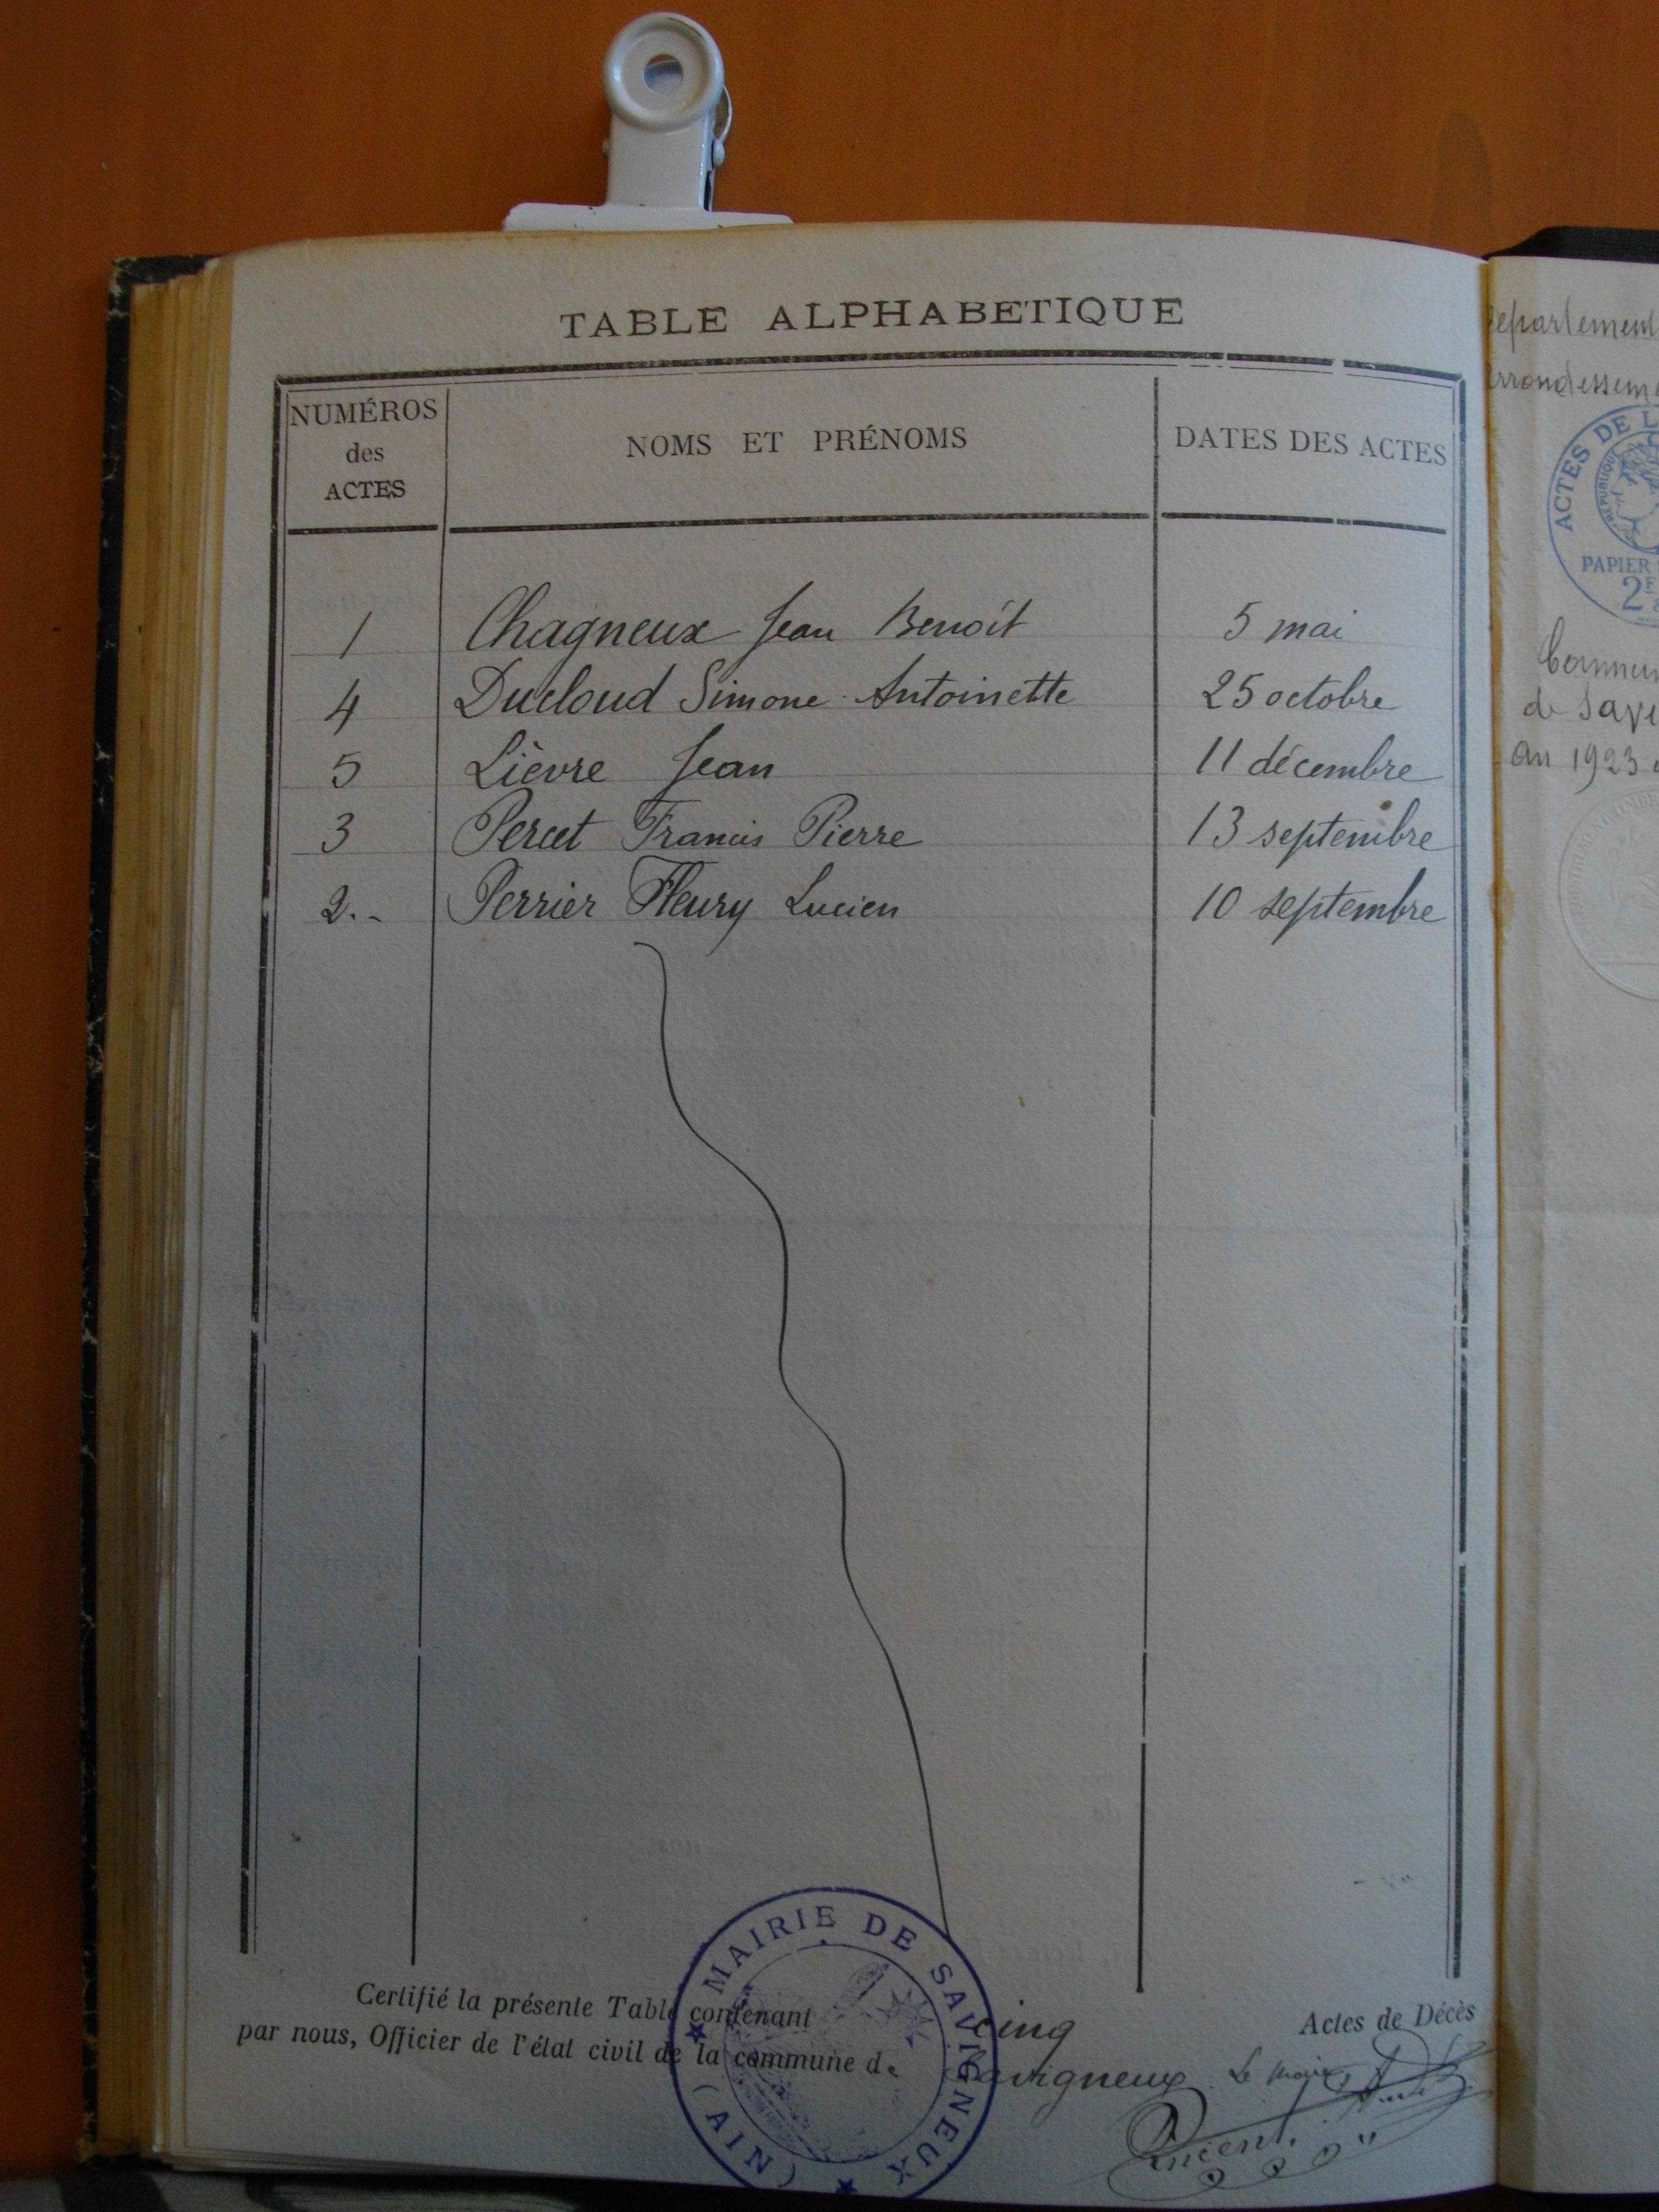 TABLE ALPHABETIQUE
NUMÉROS
des
ACTES
NOMS ET PRÉNOMS
DATES DES ACTES
1 Chagneux Jean Benoît 5 mai
4 Ducloud Simone Antoinette 25 octobre
5 Lièvre Jean 11 décembre
3 Percet Francis Pierre 13 septembre
2.- Perrier Fleury Lucien 10 septembre
Certifié la présente Table contenant cinq Actes de Décès
par nous, Officier de l'état civil de la commune de Savigneux. Le maire,
Vincent
MAIRIE DE SAVIGNEUX
(AIN)
Département
ACTES DE
REPUBLIQUE
PAPIER
2F
de Savi
an 1923